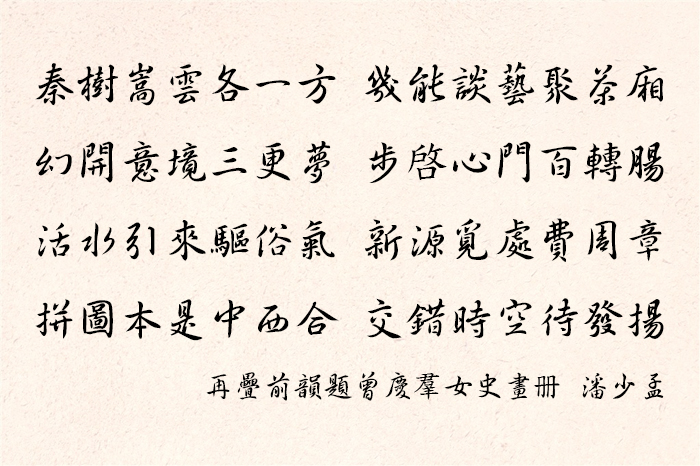 秦樹嵩雲各一方 幾能談藝聚茶廂
幻開意境三更夢 步啓心門百轉腸
活水引來驅俗氣 新源覓處費周章
拼圖本是中西合 交錯時空待發揚
再疊前韻題曾慶羣女史畫册 潘少孟